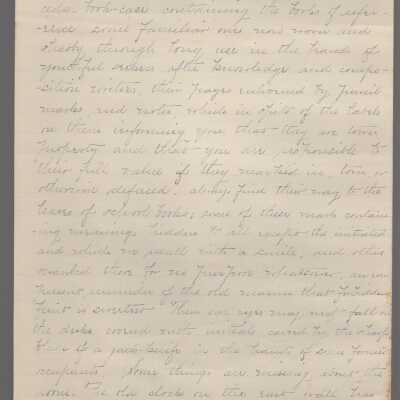 book-case containing the books of refer-
ence some familiar ones now worn and
through long use in the hands of
youthful seekers after knowledge and compo-
sition writers, their pages enlivened by pencil
marks, and notes, which in spite of the labels
on them informing you that they are town
property and that you are responsible to
their full value if they marked in, torn or
otherwise defaced, always find their way to the
leaves of school books, some of these marks contain-
ing meanings hidden to all except the initiated
and which we recall with a smile, and others
marked there for no purpose whatever, an ever
present reminder of the old maxim that forbidden
fruit is sweetest. Then our eyes may next fall on
the desks, covered with initials carved by the
of a jack-knife in the hands of some former
occupants. Some things are missing about the
room. The old clock on the east wall has